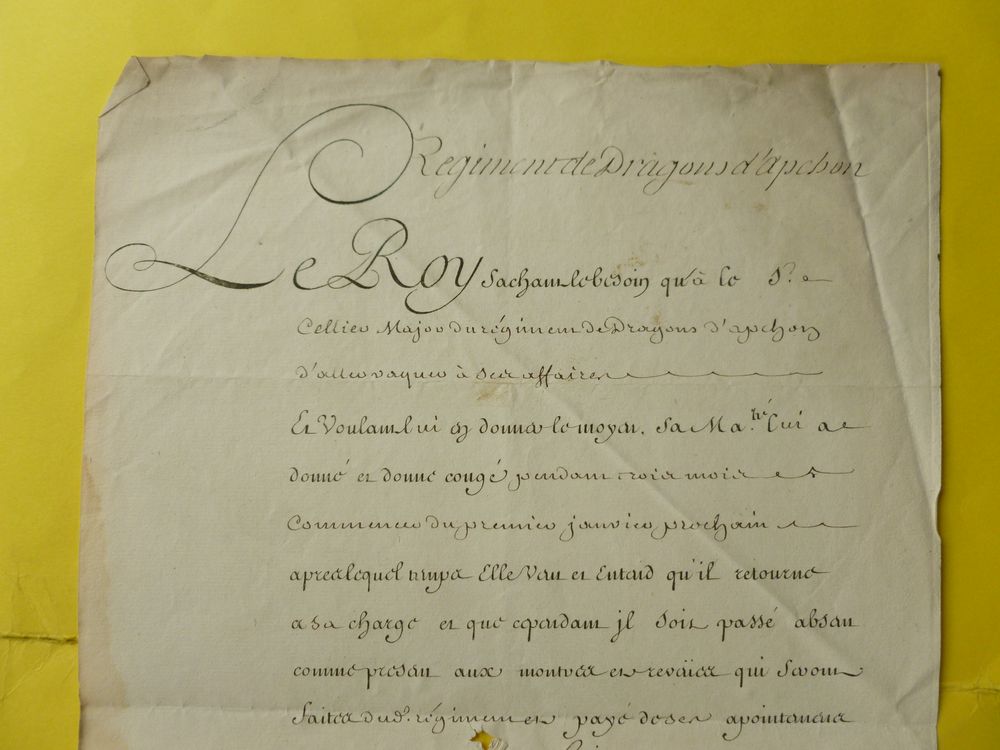 Regiment de Dragons d'apchon
Le Roy Sachant le besoin qu'à le S.r
Cellier Major du régiment de Dragons d'apchon
d'aller vaquer à ses affaires
Et Voulant lui en donner le moyen, Sa Ma.té lui a
donné et donne congé pendant trois mois
Commencer du premier janvier prochain
apres lequel temps Elle Veut et Entend qu'il retourne
a sa charge et que cependant jl soit passé absent
comme present aux montres et revües qui Seront
faites dud. régiment et payé de ses apointemens